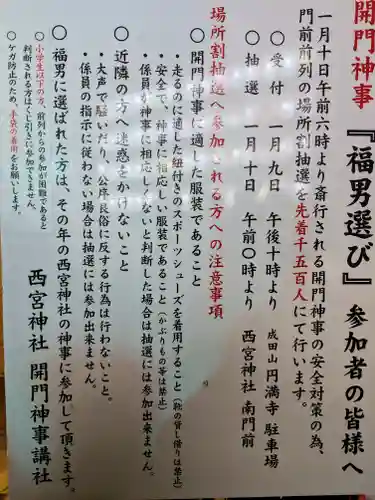 開門神事『福男選び』参加者の皆様へ
一月十日午前六時より斎行される開門神事の安全対策の為、
門前前列の場所割抽選を先着千五百人にて行います。
○受付 一月九日 午後十時より 成田山円満寺駐車場
○抽選 一月十日 午前〇時より 西宮神社南門前
場所割抽選へ参加される方への注意事項
○開門神事に適した服装であること
・走るのに適した紐付きのスポーツシューズを着用すること(靴の貸し借りは禁止)
・安全で、神事に相応しい服装であること(かぶりもの等は禁止)
・係員が神事に相応しくないと判断した場合は抽選には参加出来ません。
○近隣の方へ迷惑をかけないこと
・大声で騒いだり、公序良俗に反する行為は行わないこと。
・係員の指示に従わない場合は抽選には参加出来ません。
○福男に選ばれた方は、その年の西宮神社の神事に参加して頂きます。
○小学生以下の方、前列からの参加が困難であると
判断される方はくじ引に参加できません。
○ケガ防止のため、手袋の着用をお願いします。
西宮神社 開門神事講社